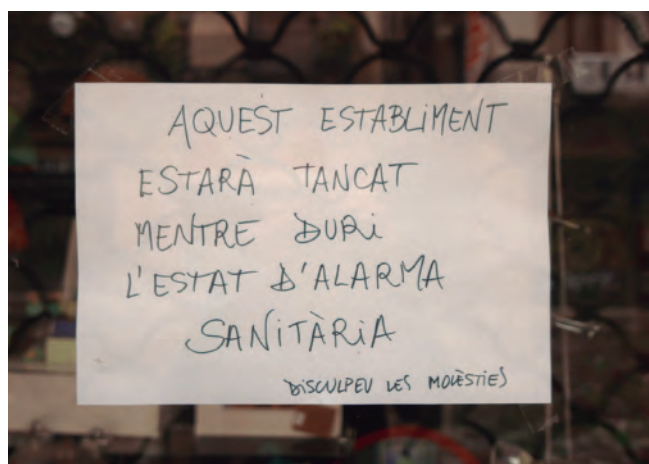 AQUEST ESTABLIMENT
ESTARÀ TANCAT
MENTRE DURI
L'ESTAT D'ALARMA
SANITÀRIA
DISCULPEU LES MOLÈSTIES